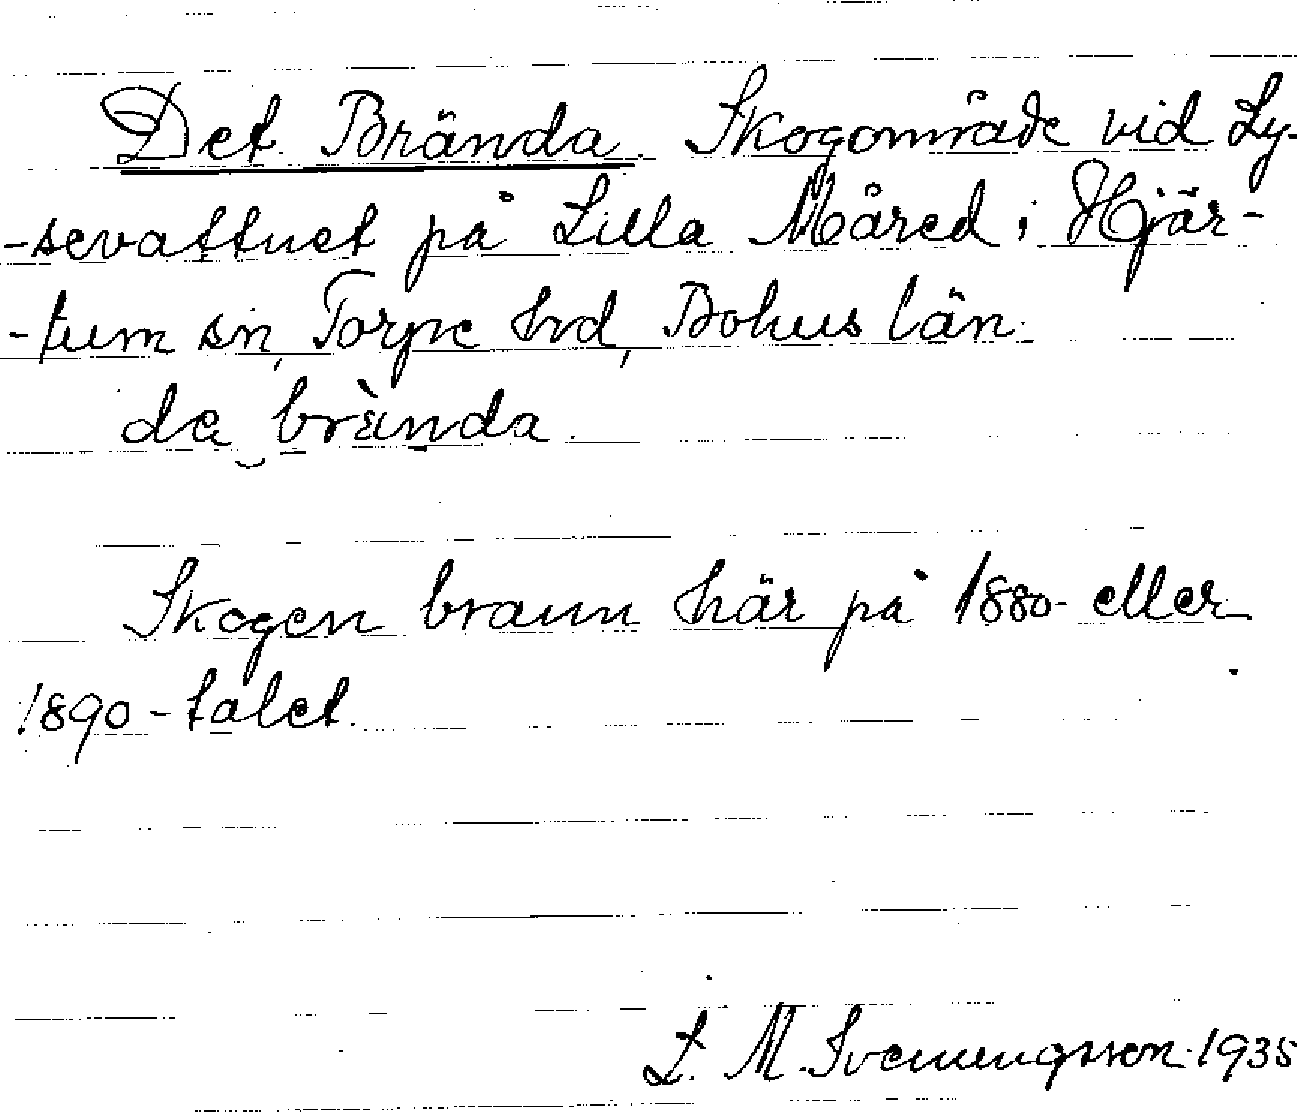 Det Brända. Skogområde vid Ly-
-sevattnet på Lilla Måred i Hjär-
-tum sn, Torpe hrd, Bohus län.
de brànda.
Skogen brann här på 1880- eller
1890-talet.
L. M. Svenungsson 1935